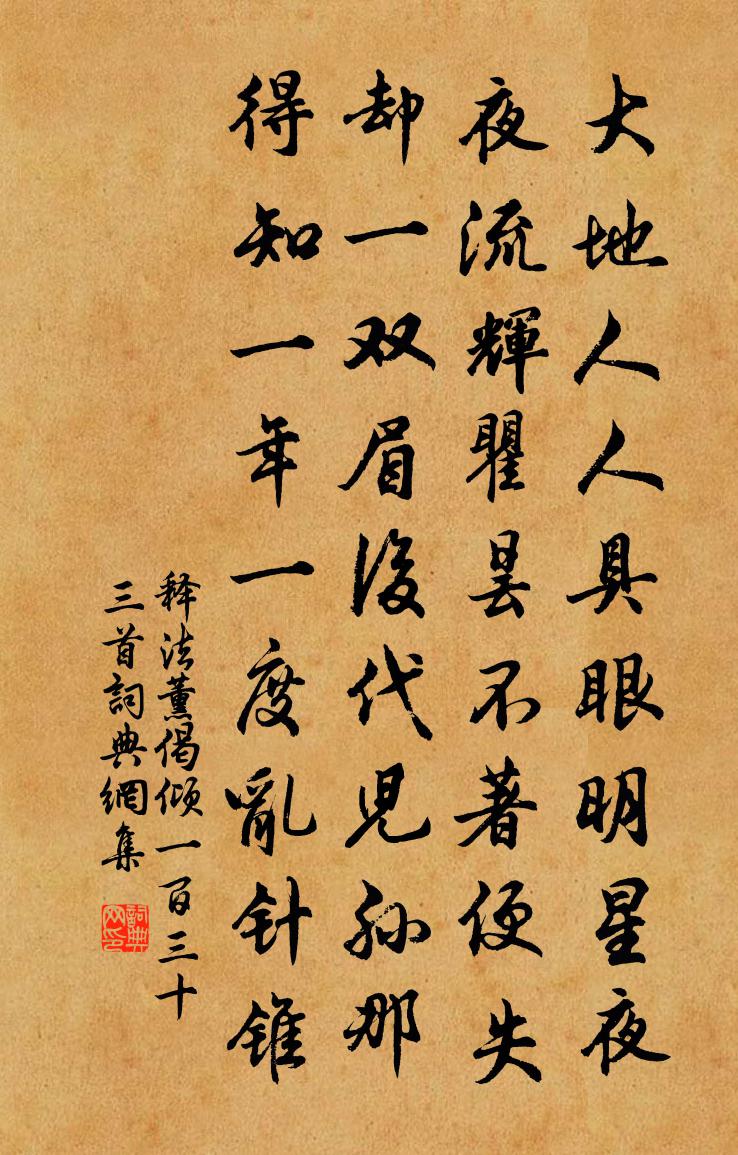 大地人人具眼明星夜
夜流輝瞿昙不著便失
却一双眉後代児孙那
得知一年一度亂针锥
释法薰偈倾一百三十
三首詞典網集
詞典网印